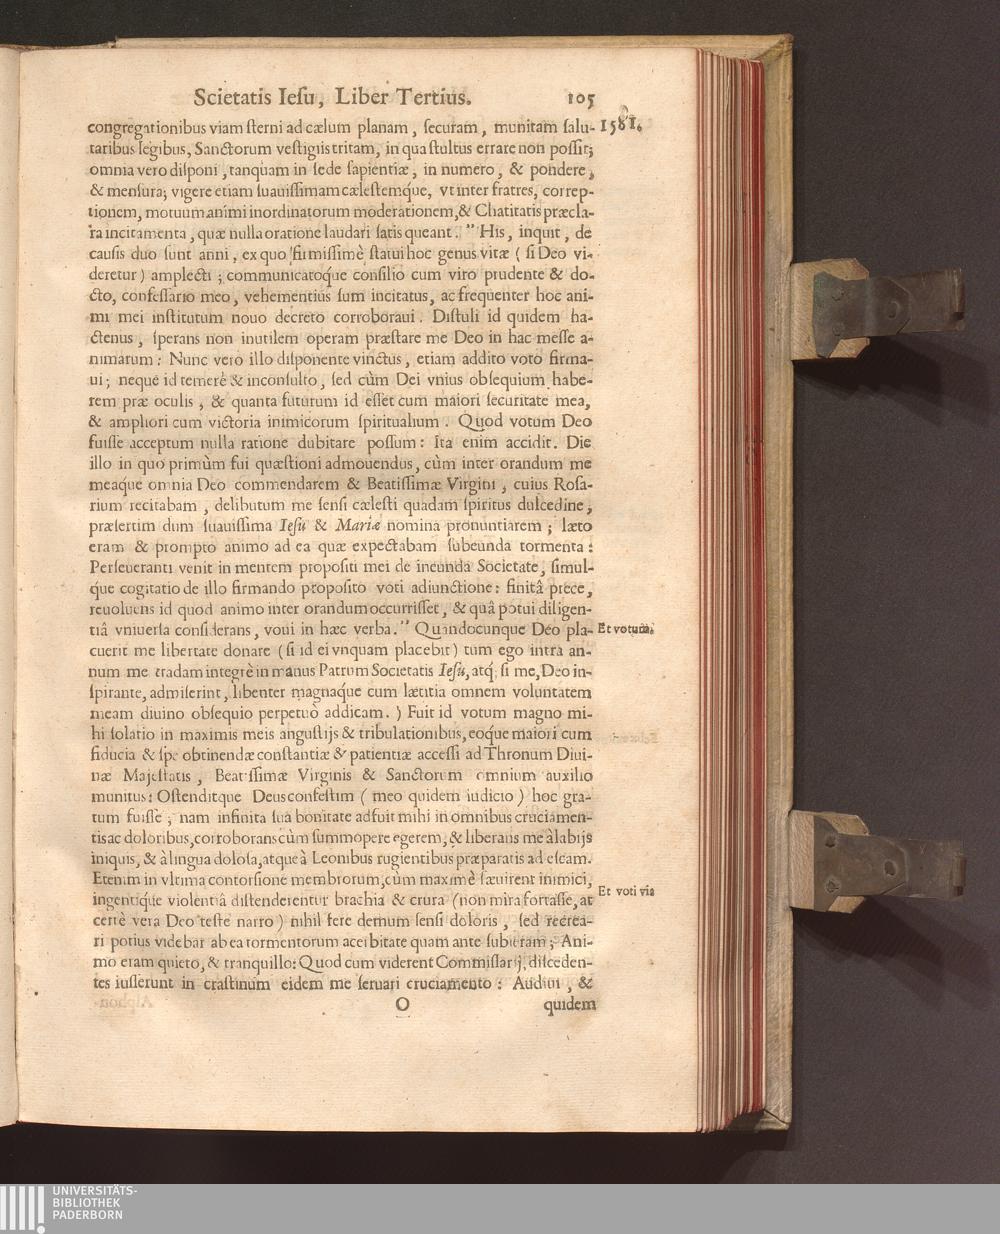 Scietatis Iesu, Liber Tertius. 105
congregationibus viam sterni ad cælum planam, securam, munitam salu- 1581.
taribus legibus, Sanctorum vestigiis tritam, in qua stultus errare non possit;
omnia vero disponi, tanquam in sede sapientiæ, in numero, & pondere,
& mensura; vigere etiam suauissimam cælestemque, vt inter fratres, correp-
tionem, motuum animi inordinatorum moderationem, & Chatitatis præcla-
ra incitamenta, quæ nulla oratione laudari satis queant. " His, inquit, de
causis duo sunt anni, ex quo firmissimè statui hoc genus vitæ ( si Deo vi-
deretur ) amplecti; communicatoque consilio cum viro prudente & do-
cto, confessario meo, vehementius sum incitatus, ac frequenter hoc ani-
mi mei institutum nouo decreto corroboraui. Distuli id quidem ha-
ctenus, sperans non inutilem operam præstare me Deo in hac messe a-
nimarum: Nunc verò illo disponente vinctus, etiam addito voto firma-
ui; neque id temerè & inconsulto, sed cùm Dei vnius obsequium habe-
rem præ oculis, & quanta futurum id esset cum maiori securitate mea,
& ampliori cum victoria inimicorum spiritualium. Quod votum Deo
fuisse acceptum nulla ratione dubitare possum: Ita enim accidit. Die
illo in quo primùm fui quæstioni admouendus, cùm inter orandum me
meaque omnia Deo commendarem & Beatissimæ Virgini, cuius Rosa-
rium recitabam, delibutum me sensi cælesti quadam spiritus dulcedine,
præsertim dum suauissima Iesu & Mariæ nomina pronuntiarem; læto
eram & prompto animo ad ea quæ expectabam subeunda tormenta:
Perseueranti venit in mentem propositi mei de ineunda Societate, simul-
que cogitatio de illo firmando proposito voti adiunctione: finitâ prece,
reuoluens id quod animo inter orandum occurrisset, & quâ potui diligen-
tiâ vniuersa considerans, voui in hæc verba. " Quandocunque Deo pla- Et votum.
cuerit me libertate donare ( si id ei vnquam placebit ) tum ego intra an-
num me tradam integrè in manus Patrum Societatis Iesu, atq; si me, Deo in-
spirante, admiserint, libenter magnaque cum lætitia omnem voluntatem
meam diuino obsequio perpetuò addicam. ) Fuit id votum magno mi-
hi solatio in maximis meis angustijs & tribulationibus, eoque maiori cum
fiducia & spe obtinendæ constantiæ & patientiæ accessi ad Thronum Diui-
næ Majestatis, Beatissimæ Virginis & Sanctorum omnium auxilio
munitus: Ostenditque Deus confestim ( meo quidem iudicio ) hoc gra-
tum fuisse; nam infinita sua bonitate adfuit mihi in omnibus cruciamen-
tis ac doloribus, corroborans cùm summopere egerem, & liberans me à labijs
iniquis, & à lingua dolosa, atque à Leonibus rugientibus præparatis ad escam.
Etenim in vltima contorsione membrorum, cùm maximè sæuirent inimici,
ingentique violentiâ distenderentur brachia & crura (non mira fortasse, at Et voti vis
certè vera Deo teste narro) nihil fere demum sensi doloris, sed recrea-
ri potius videbar ab ea tormentorum acerbitate quam ante subieram; Ani-
mo eram quieto, & tranquillo: Quod cum viderent Commissarij, disceden-
tes iusserunt in crastinum eidem me seruari cruciamento: Audiui, &
O quidem
UNIVERSITÄTS-
BIBLIOTHEK
PADERBORN